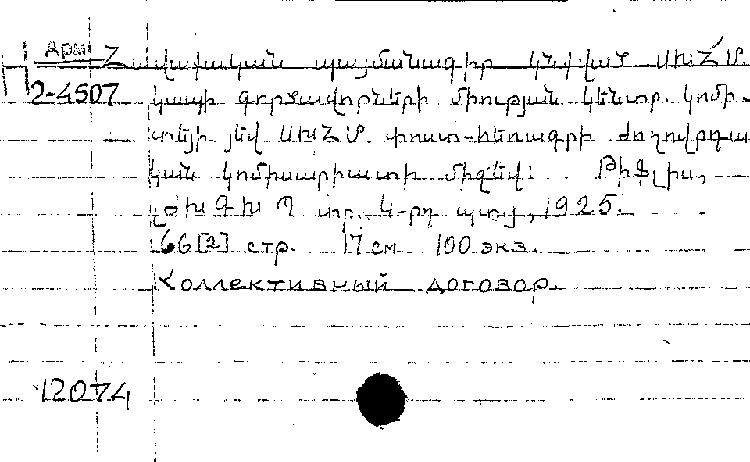 Арм Հավաքական պայմանագիր կնքված ՍԽՀՄ
2-4507 կապի գործավորների միության կենտր. կոմի-
տեյի յեվ ՍԽՀՄ. փոստ-հեռագրի ժողովրդա
կան կոմիսարիատի միջեվ. Թիֆլիս,
ԺԽԳԽՊ տր. 4-րդ պետ., 1925.
66[2] стр. 17 см 100 экз.
Коллективный договор.
12074